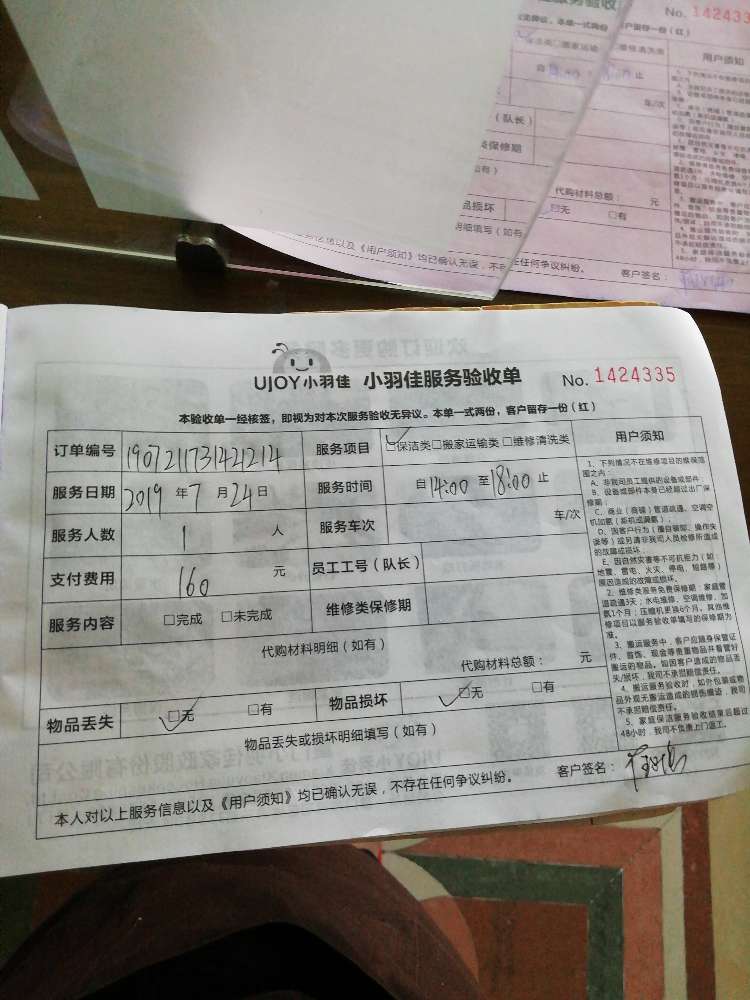 No. 1424335
用户须知
(队长)
保修期
代购材料总额： 元
品损坏 □无 □有
客户签名：
UJOY小羽佳 小羽佳服务验收单 No. 1424335
本验收单一经核签，即视为对本次服务验收无异议。本单一式两份，客户留存一份（红）
订单编号 服务项目 □保洁类□搬家运输类□维修清洗类 用户须知
服务日期 2019 年 7 月 24 日 服务时间 自 14:00 至 18:00 止
服务人数 1 人 服务车次 车/次
支付费用 160 元 员工工号（队长）
服务内容 □完成 □未完成 维修类保修期
代购材料明细（如有）
代购材料总额： 元
物品丢失 □无 □有 物品损坏 □无 □有
物品丢失或损坏明细填写（如有）
本人对以上服务信息以及《用户须知》均已确认无误，不存在任何争议纠纷。 客户签名：
1、下列情况不在维修项目的维保范
围之内：
A、非我司员工提供的设备或部件；
B、设备或部件本身已经超过出厂保
修期；
C、商业（商铺）管道疏通、空调空
机加氟（新机或漏氟）；
D、因客户行为（擅自装卸、操作失
误等）或另请非我司人员检修所造成
的故障或损坏；
E、因自然灾害等不可抗拒力（如：
地震、雷电、火灾、停电、短路等）
原因造成的故障或损坏。
2、维修类服务免费保修期：家庭管
道疏通3天；水电维修、空调维修、加
氟1个月；压缩机更换6个月，其他维
修项目以服务验收单填写的保修期为
准。
3、搬运服务中，客户应随身保管证
件、首饰、现金等贵重物品并看管好
搬运的物品。如因客户造成的物品丢
失/损坏，我司不承担赔偿责任。
4、搬运服务验收时，如外包装或物
品外观无搬运造成的销售痕迹，我司
不承担赔偿责任。
5、家庭保洁服务验收结束后超过
48小时，我司不负责上门返工。